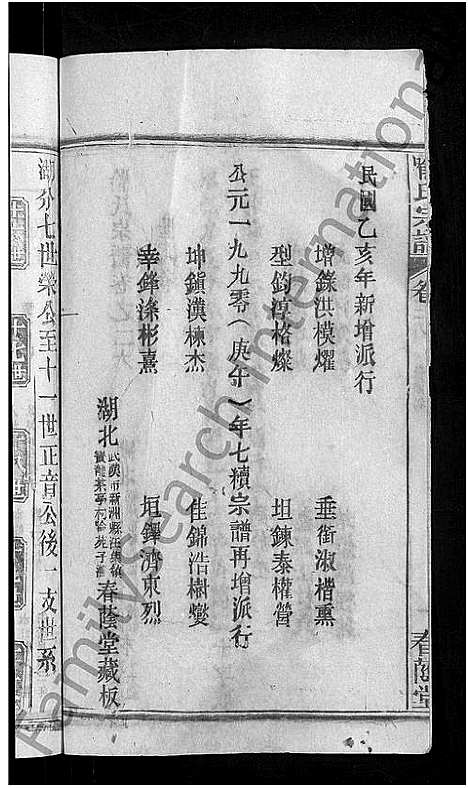 喻氏宗譜
卷
春蔭堂
民國乙亥年新增派行
增鎳洪模燿
垂銜淑楷熏
型鈞淳格燦
坦鍊泰權營
公元一九九零(庚午)年七續宗譜再增派行
坤鎮漢棟杰
佳錦浩樹燮
幸鋒滌彬熹
垣鐸濟東烈
湖北
武漢市新洲縣汪集鎮
春蔭堂藏板
湖分七世榮公至十一世正音公後一支世系
FamilySearch International